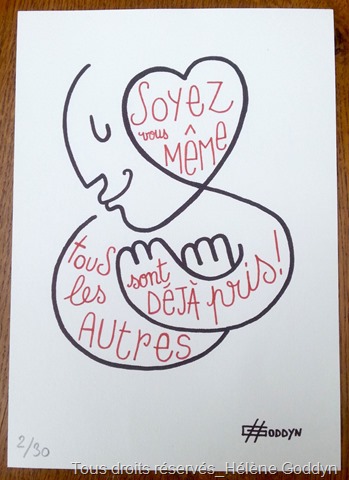 SOYEZ
vous
MÊME
tous
les
AUTRES
sont
DÉJÀ pris!
GODDYN
2/30
Tous droits réservés_Hélène Goddyn